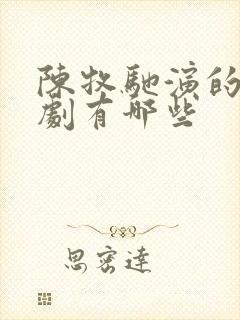 陳牧馳演的
劇有哪些
思密達